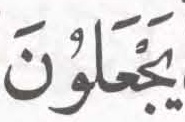 يَجْعَلُونَ